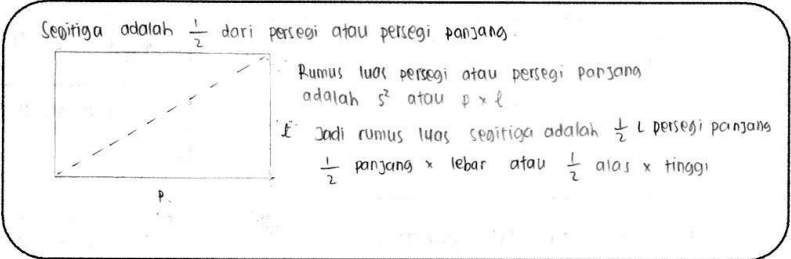 Segitiga adalah 1/2 dari persegi atau persegi panjang.
Rumus luas persegi atau persegi panjang
adalah s² atau p x l
l Jadi rumus luas segitiga adalah 1/2 L persegi panjang
1/2 panjang x lebar atau 1/2 alas x tinggi
p.